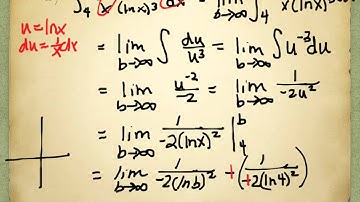 ∫₄ x(lnx)³ dx = lim b→∞ ∫₄ x(lnx)³
u = lnx
du = 1/x dx
= lim b→∞ ∫ du/u³ = lim b→∞ ∫u⁻³du
= lim b→∞ u⁻²/-2 = lim b→∞ 1/-2u²
= lim b→∞ 1/-2(lnx)² |₄ᵇ
= lim b→∞ 1/-2(lnb)² + (1/+2(ln4)²)